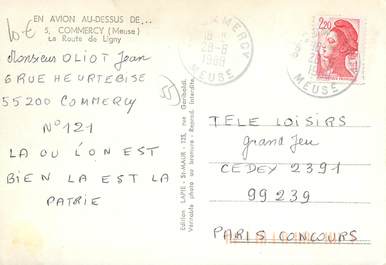 10€
EN AVION AU-DESSUS DE...
5, COMMERCY (Meuse)
La Route de Ligny
Monsieur OLIOT Jean
6 RUE HEURTEBISE
55200 COMMERCY
N° 121
LA OU L'ON EST
BIEN LA EST LA
PATRIE
55
Edition LAPIE - St-MAUR - 123, rue Garibaldi.
Véritable photo au bromure - Reprod. interdite.
COMMERCY
28-6
1988
MEUSE
2,20
MEUSE
TELE LOISIRS
grand Jeu
CEDEY 2391
99239
PARIS CONCOURS